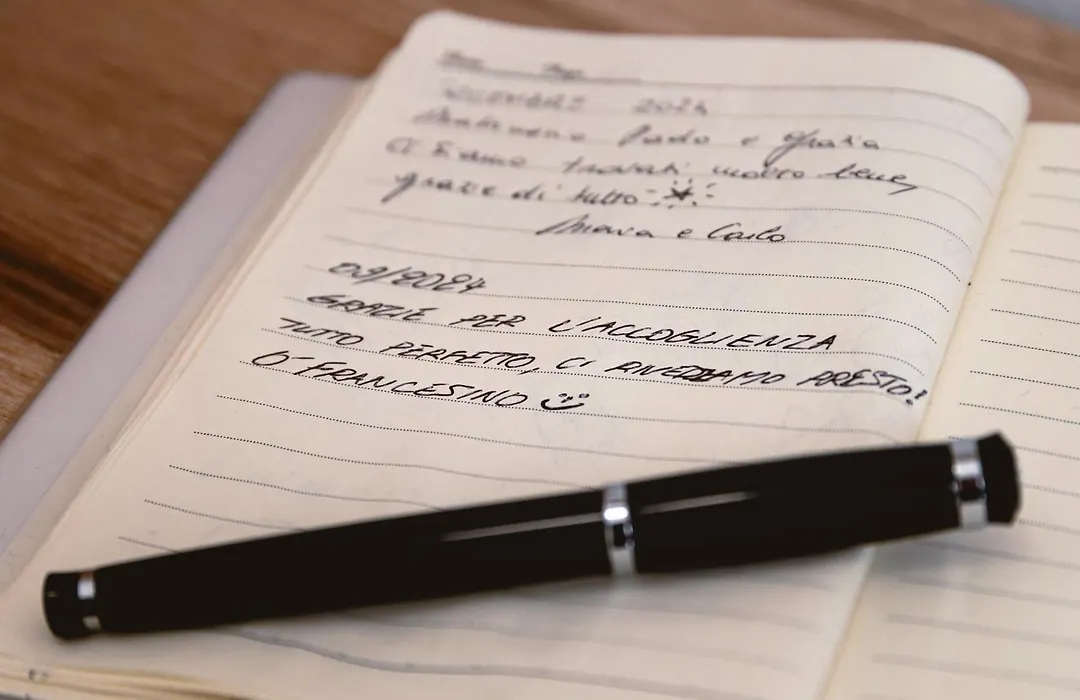 NOVEMBRE 2024
Paolo e Grazia
Ci siamo trovati molto bene,
grazie di tutto
e Carlo
09/2024
GRAZIE PER L'ACCOGLIENZA
TUTTO PERFETTO, CI RIVEDIAMO PRESTO!
O' FRANCESINO